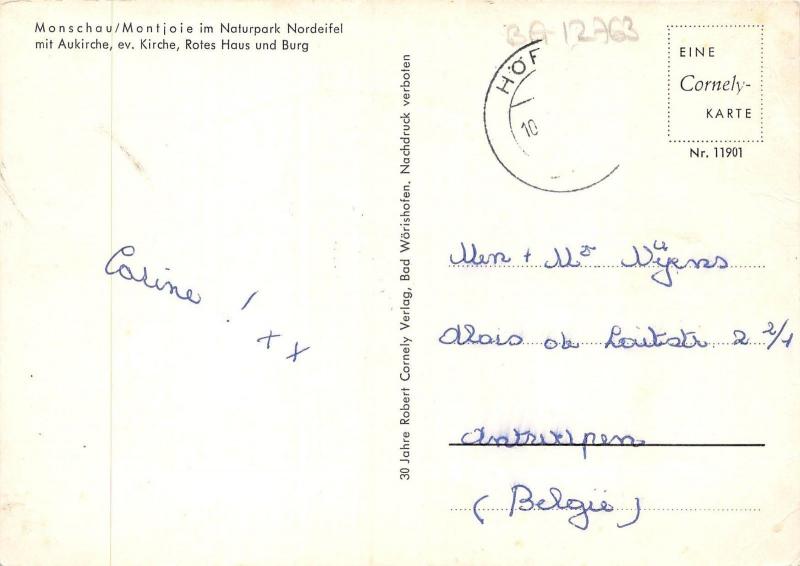 Monschau/Montjoie im Naturpark Nordeifel
mit Aukirche, ev. Kirche, Rotes Haus und Burg
BA 12763
HÖF
10
EINE
Cornely-
KARTE
Nr. 11901
30 Jahre Robert Cornely Verlag, Bad Wörishofen. Nachdruck verboten
Carine !
x x
Men + Mr
2 2/1
Antwerpen
(België)